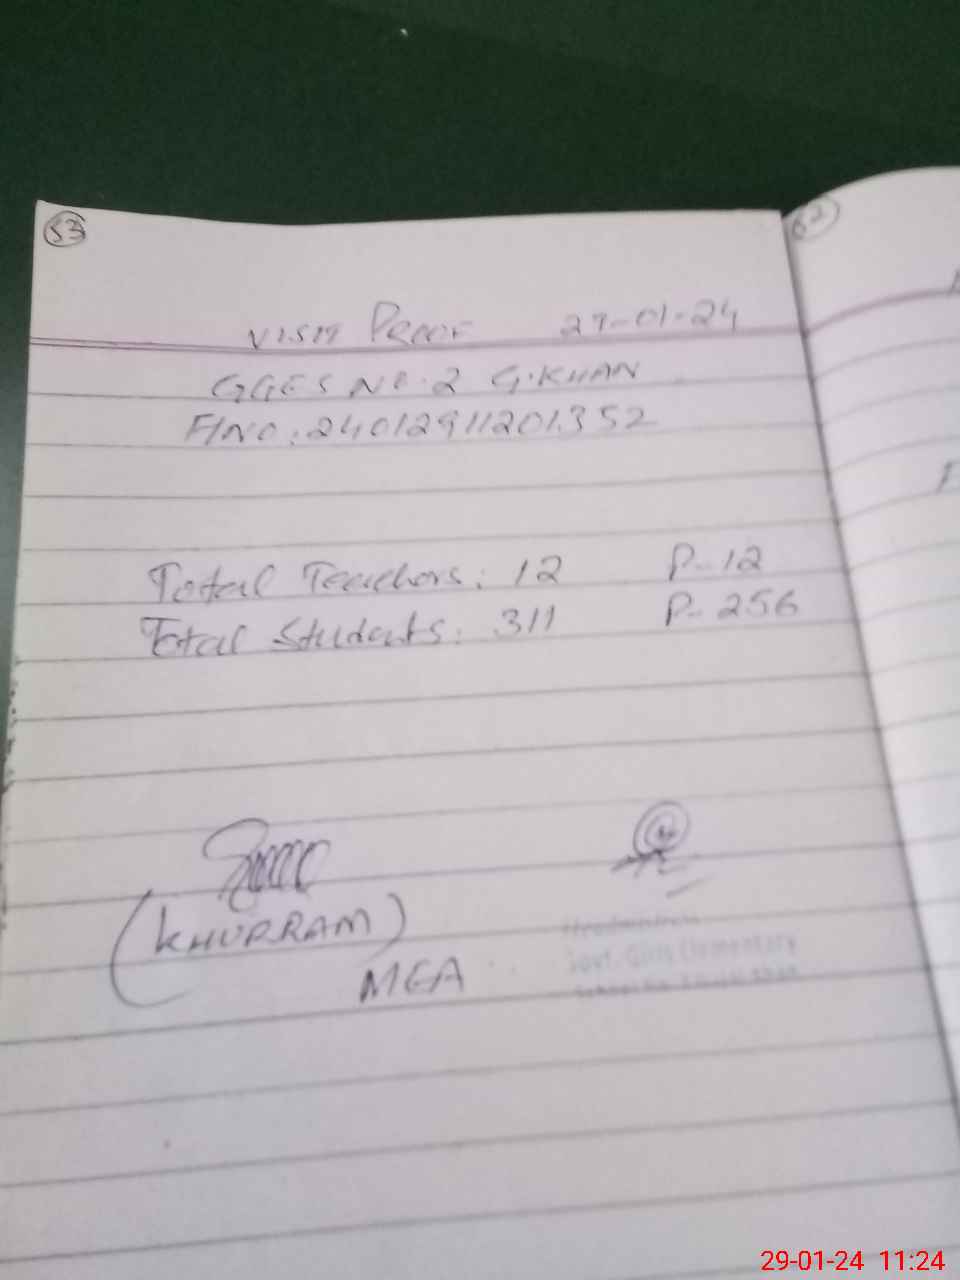 53
VISIT PROOF 29-01-24
GGES NO.2 G.KHAN
F/NO:24012911201352
Total Teachers: 12 P- 12
Total Students: 311 P- 256
(KHURRAM)
MEA
Headmistress
Govt. Girls Elementary
29-01-24 11:24